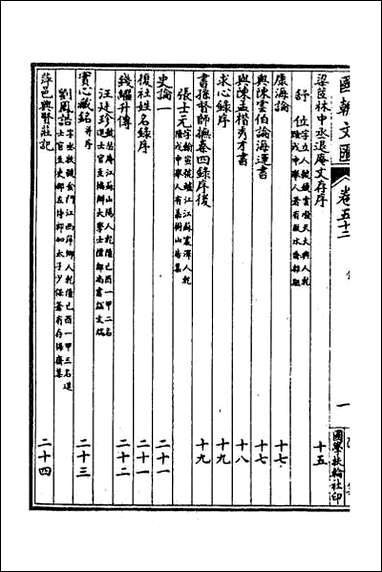 國朝文匯 卷五十二 一 國學扶輪社印
梁茝林中丞退庵文存序 十五
舒位 字立人號鐵雲順天大興人乾隆戊申舉人著有缾水齋集
康海論 十七
與陳雲伯論海運書 十七
與陳孟楷秀才書 十八
求心錄序 十九
書孫督師撫秦四錄序後 十九
張士元 字翰宣號鱸江江蘇震澤人乾隆戊申舉人有嘉樹山房集
史論一 二十一
復社姓名錄序 二十一
錢繼升傳 二十二
汪廷珍 號瑟庵江蘇山陽人乾隆己酉一甲二名進士官至協辦大學士禮部尚書諡文端
實心藏銘并序 二十三
劉鳳誥 字丞牧號金門江西萍鄉人乾隆己酉一甲三名進士官至吏部左侍郎加太子少保著有存悔齋集
萍邑興賢莊記 二十四